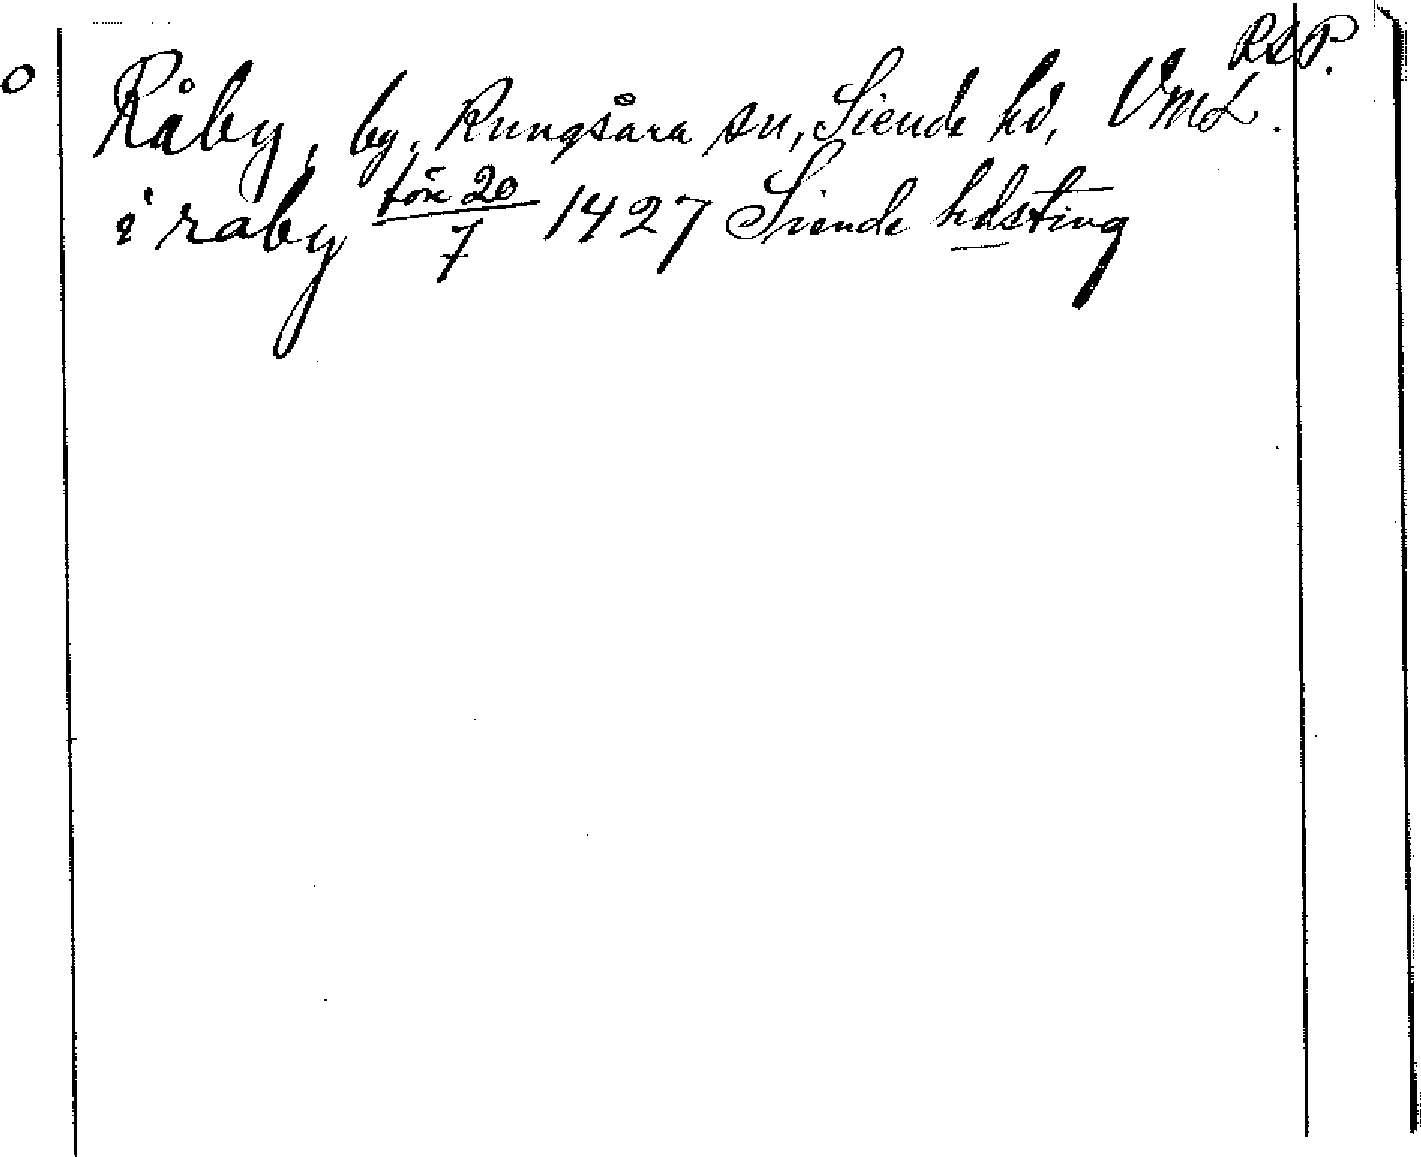 RAP.
Råby, by, Kungsåra sn, Siende hd, VML.
i raby före 20/7 1427 Siende hdsting